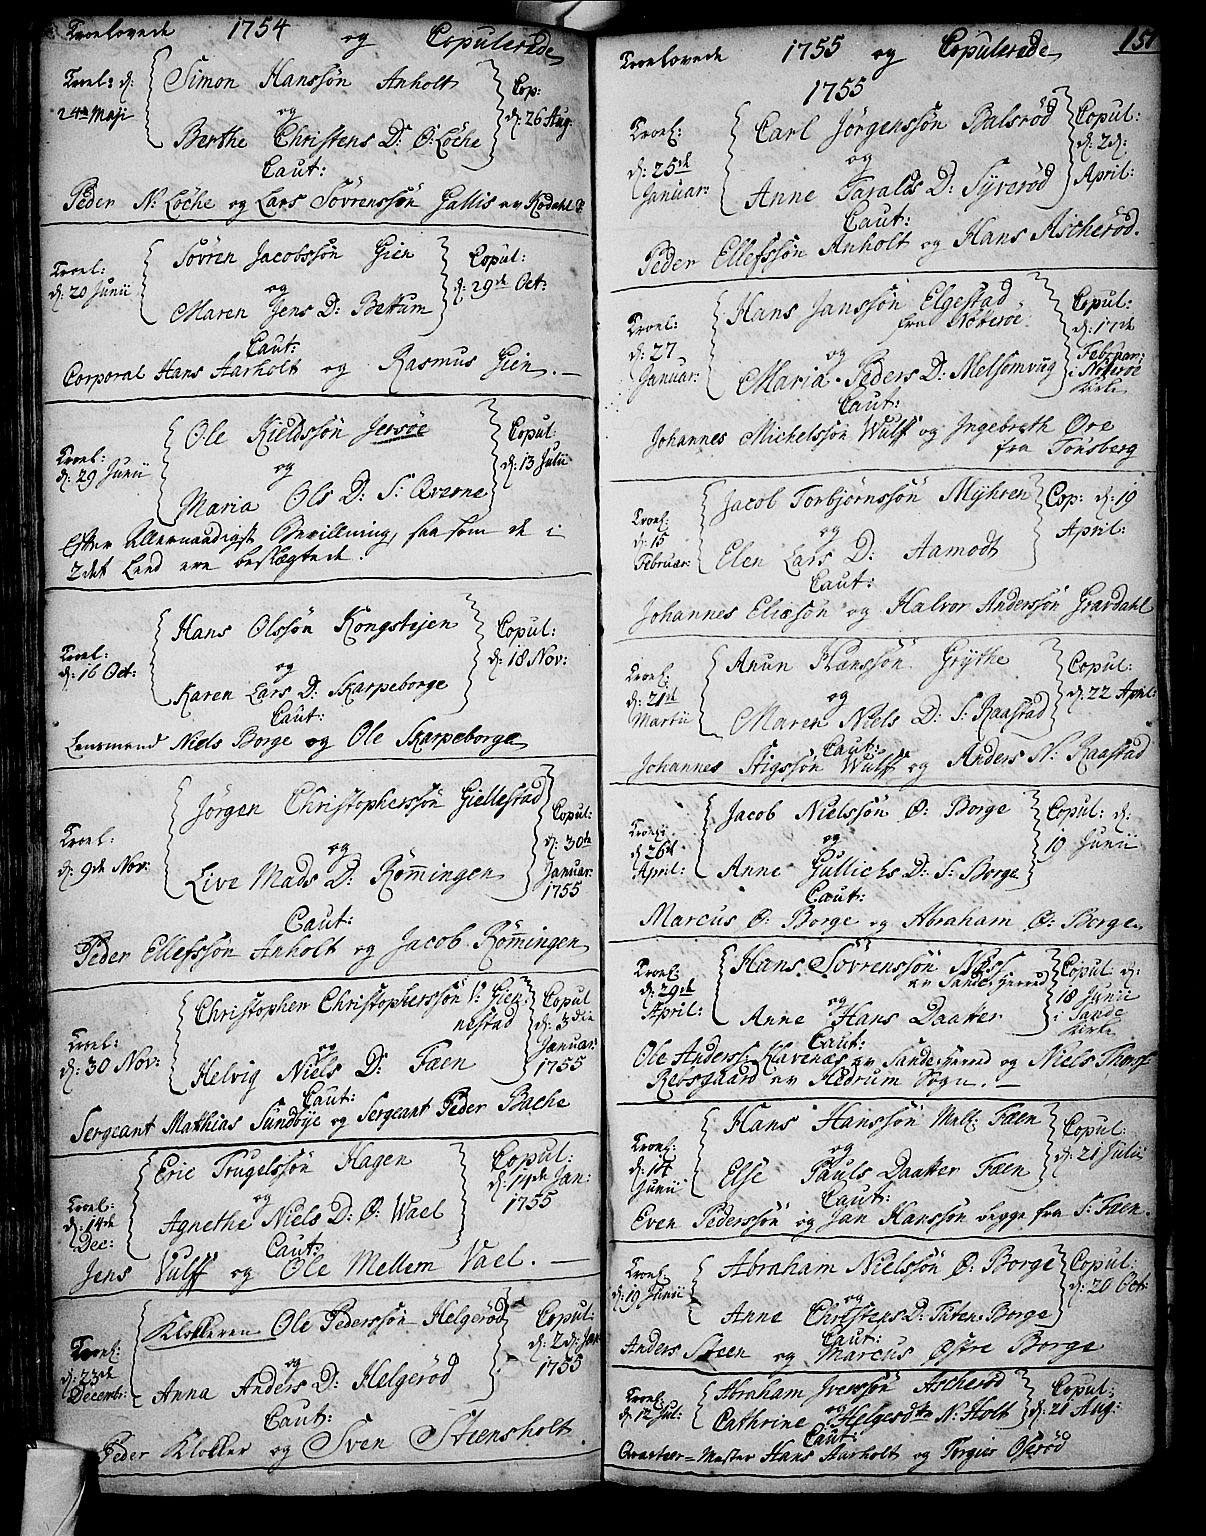 Troelovede 1754 og Copulerede
Troel: d: 24de Maji
Simon Hanssön Anholt
og
Berthe Christens D: Ø: Löche
Cop: d: 26 Aug:
Caut:
Peder N: Löche og Lars Sövrenssön Gallis av Kodahl
Troel: d: 20 Junii
Sövren Jacobssön Gien
og
Maren Jens D: Bettum
Copul: d: 29de Oct:
Caut:
Corporal Hans Aarholt og Rasmus Gien.
Troel: d: 29 Junii
Ole Kieldssön Jersöe
og
Maria Ols D: S: Qverne
Copul: d: 13 Julii
Efter Allernaadigst Bevillning, saasom de i
2det Leed ere beslægtede.
Troel: d: 16 Oct:
Hans Olssön Kongstejen
og
Karen Lars D: Skarpeborge
Copul: d: 18 Nov:
Caut:
Lensmand Niels Borge og Ole Skarpeborge
Troel: d: 9de Nov:
Jörgen Christopherssön Giellestad
og
Live Mads D: Römingen
Copul: d: 30te Januar: 1755
Caut:
Peder Ellefssön Anholt og Jacob Römingen
Troel: d: 30 Nov:
Christopher Christopherssön V: Gien-
nestad
og
Helvig Niels D: Faen
Copul d: 3die Januar: 1755
Caut:
Sergeant Matthias Sundbye og Sergeant Peder Bache
Troel: d: 14de Dec:
Eric Trugelssön Hagen
og
Agnethe Niels D: Ø: Wael
Copul: d: 14de Jan: 1755
Caut:
Jens Vulff og Ole Mellem Vael.
Troel: d: 23de Decemb:
Klokkeren Ole Pederssön Helgeröd
og
Anna Anders D: Helgeröd
Copul: d: 2d: Jan 1755
Caut:
Peder Klokker og Sven Steensholt
Troelovede 1755 og Copulerede 151
1755
Troel: d: 25de Januar:
Carl Jörgenssön Balsröd
og
Anne Taralds D: Syveröd
Copul: d: 2d: April:
Caut:
Peder Ellefssön Anholt og Hans Ascheröd.
Troel: d: 27 Januar:
Hans Janssön Elgestad
fra Nötteröe
og
Maria Peders D: Melsomvüg
Copul: d: 17de Februar: i Nöteröe Kirke
Caut:
Johannes Michelssön Wulff og Ingebreth Øre
fra Tönsberg
Troel: d: 15 Februar:
Jacob Torbjörnssön Myhren
og
Elen Lars D: Aamodt
Cop: d: 19 April:
Caut:
Johannes Eliæsön og Halvor Anderssön Gravdahl
Troel: d: 21de Martii
Anun Hanssön Grythe
og
Maren Niels D: S: Raastad
Copul: d: 22 April:
Caut:
Johannes Stigssön Wulff og Anders N: Raastad
Troel: d 26de April:
Jacob Nielssön Ø: Borge
og
Anne Gullichs D: S: Borge
Copul: d: 19 Junii
Caut:
Marcus Ø: Borge og Abraham Ø: Borge.
Troel: d: 29de April:
Hans Sövrenssön Næss
av Sande-Herred
og
Anne Hans Daatter
Copul: d: 18 Junii i Sande Kirke
Caut:
Ole Anderss: Klavenæs av Sandeherred og Niels Thors:
Rebsgaard av Hedrum Sogn.
Troel: d: 14 Junii
Hans Hanssön Mell: Fæen
og
Else Pauls Daatter Fæen
Copul: d: 21 Julii
Caut:
Even Pederssön og Jan Hanssön begge fra S: Fæen.
Troel: d: 19 Junii
Abraham Nielssön Ø: Borge
og
Anne Christens D: Tuten-Borge
Copul: d: 20 Oct:
Caut:
Anders Steen og Marcus Østre Borge
Troel: d: 12 Jul:
Abraham Iverssön Ascheröd
og
Cathrine Helgesdtr N: Holt
Copul: d: 21 Aug:
Caut:
Qvarteer-Mester Hans Aarholt og Torgier Oseröd